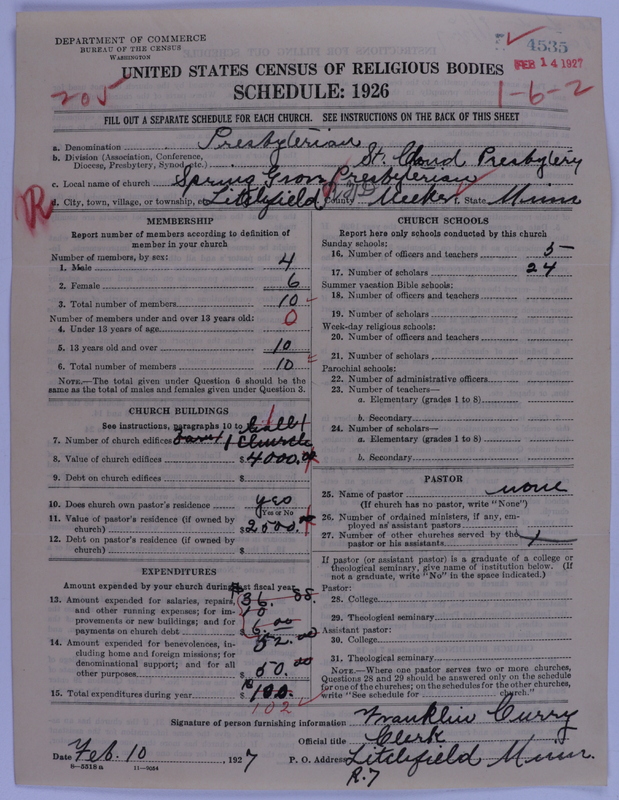 DEPARTMENT OF COMMERCE
BUREAU OF THE CENSUS
WASHINGTON
4535
FEB 14 1927
UNITED STATES CENSUS OF RELIGIOUS BODIES
205
SCHEDULE: 1926
1-6-2
FILL OUT A SEPARATE SCHEDULE FOR EACH CHURCH. SEE INSTRUCTIONS ON THE BACK OF THIS SHEET
a. Denomination Presbyterian
b. Division (Association, Conference, Diocese, Presbytery, Synod, etc.) St. Cloud Presbytery
c. Local name of church Spring Grove Presbyterian
R
d. City, town, village, or township, etc. Litchfield County Meeker f. State Minn
MEMBERSHIP
Report number of members according to definition of
member in your church
Number of members, by sex:
1. Male 4
2. Female 6
3. Total number of members 10
Number of members under and over 13 years old:
4. Under 13 years of age 0
5. 13 years old and over 10
6. Total number of members 10
NOTE.—The total given under Question 6 should be the
same as the total of males and females given under Question 3.
CHURCH BUILDINGS
See instructions, paragraphs 10 to
7. Number of church edifices 1 Church
8. Value of church edifices $4000.00
9. Debt on church edifices $
10. Does church own pastor's residence yes
(Yes or No)
11. Value of pastor's residence (if owned by
church) $2500.00
12. Debt on pastor's residence (if owned by
church) $
EXPENDITURES
Amount expended by your church during last fiscal year
13. Amount expended for salaries, repairs,
and other running expenses; for im-
provements or new buildings; and for
payments on church debt $ 52.00
14. Amount expended for benevolences, in-
cluding home and foreign missions; for
denominational support; and for all
other purposes $ 50.00
15. Total expenditures during year $ 100.
102
CHURCH SCHOOLS
Report here only schools conducted by this church
Sunday schools:
16. Number of officers and teachers 5
17. Number of scholars 24
Summer vacation Bible schools:
18. Number of officers and teachers
19. Number of scholars
Week-day religious schools:
20. Number of officers and teachers
21. Number of scholars
Parochial schools:
22. Number of administrative officers
23. Number of teachers—
a. Elementary (grades 1 to 8)
b. Secondary
24. Number of scholars—
a. Elementary (grades 1 to 8)
b. Secondary
PASTOR
25. Name of pastor none
(If church has no pastor, write "None")
26. Number of ordained ministers, if any, em-
ployed as assistant pastors
27. Number of other churches served by the
pastor or his assistants 1
If pastor (or assistant pastor) is a graduate of a college or
theological seminary, give name of institution below. (If
not a graduate, write "No" in the space indicated.)
Pastor:
28. College
29. Theological seminary
Assistant pastor:
30. College
31. Theological seminary
NOTE.—Where one pastor serves two or more churches,
Questions 28 and 29 should be answered only on the schedule
for one of the churches; on the schedules for the other churches,
write "See schedule for church."
Signature of person furnishing information Franklin Curry
Official title Clerk
Date Feb. 10, 1927 P. O. Address Litchfield Minn.
8-5518 a 11-9054 R.7